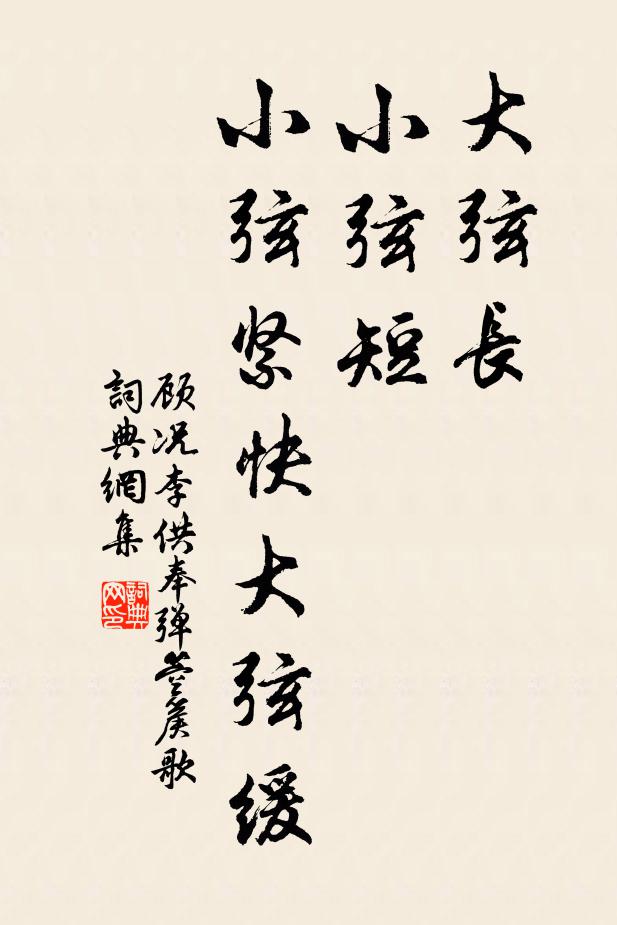 大弦長
小弦短
小弦紧快大弦缓
顾况李供奉弹箜篌歌
詞典網集
詞典网印